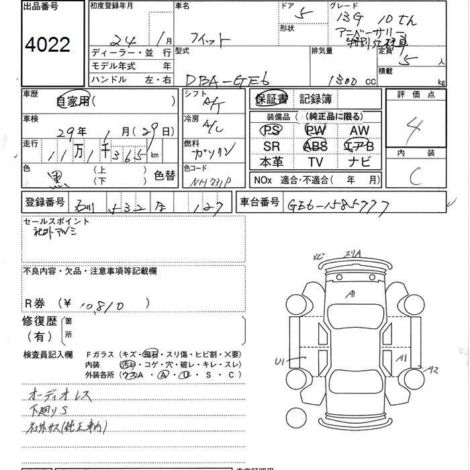 出品番号 4022
初度登録年月 24年 1月
車名 フィット
ドア 5
形状
グレード 13G 10th アニバーサリー
ディーラー・並行
モデル年式 年
ハンドル 左・右
型式 DBA-GE6
排気量 1300 cc
定員 5人
積載 kg
車歴 自家用( )
シフト A/T
保証書 記録簿
評価点 4
車検 29年 1月 29日
冷房 A/C
装備品 (純正品に限る)
PS PW AW
SR ABS エアB
本革 TV ナビ
走行 11万1千365km
燃料 ガソリン
内装 C
色 黒 (上 下) 色替
色コード NH731P
NOx 適合・不適合( 年 月)
登録番号 石川 532 127
車台番号 GE6-1585777
セールスポイント
社外アルミ
不良内容・欠品・注意事項等記載欄
R券 (¥ 10,810 )
修復歴 (有) 箇所
検査員記入欄
Fガラス (キズ・飛石・スリ傷・ヒビ割・X要)
内装 (汚・コゲ・穴・破レ・キレ・スレ)
外装各所 (ウスA・A・U・S・C)
オーディオレス
下廻りS
スリA
A1
U1
A1
A2